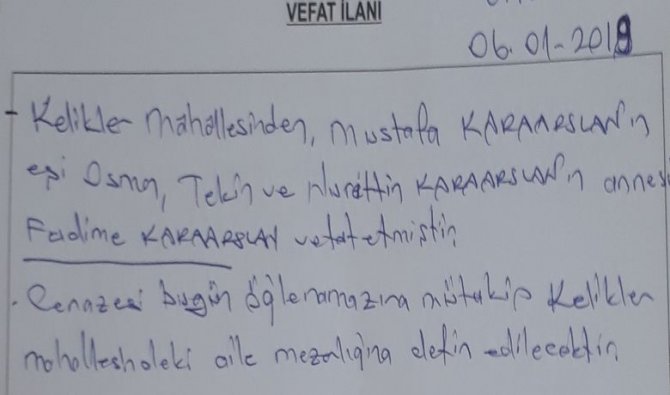 VEFAT İLANI
06.01-2019
- Kelikler mahallesinden, Mustafa KARAARSLAN'ın
eşi Osman, Tekin ve Nurettin KARAARSLAN'ın annesi
Fadime KARAARSLAN vefat etmiştir
. Cenazesi bugün öğle namazına müteakip Kelikler
mahallesindeki aile mezarlığına defin edilecektir